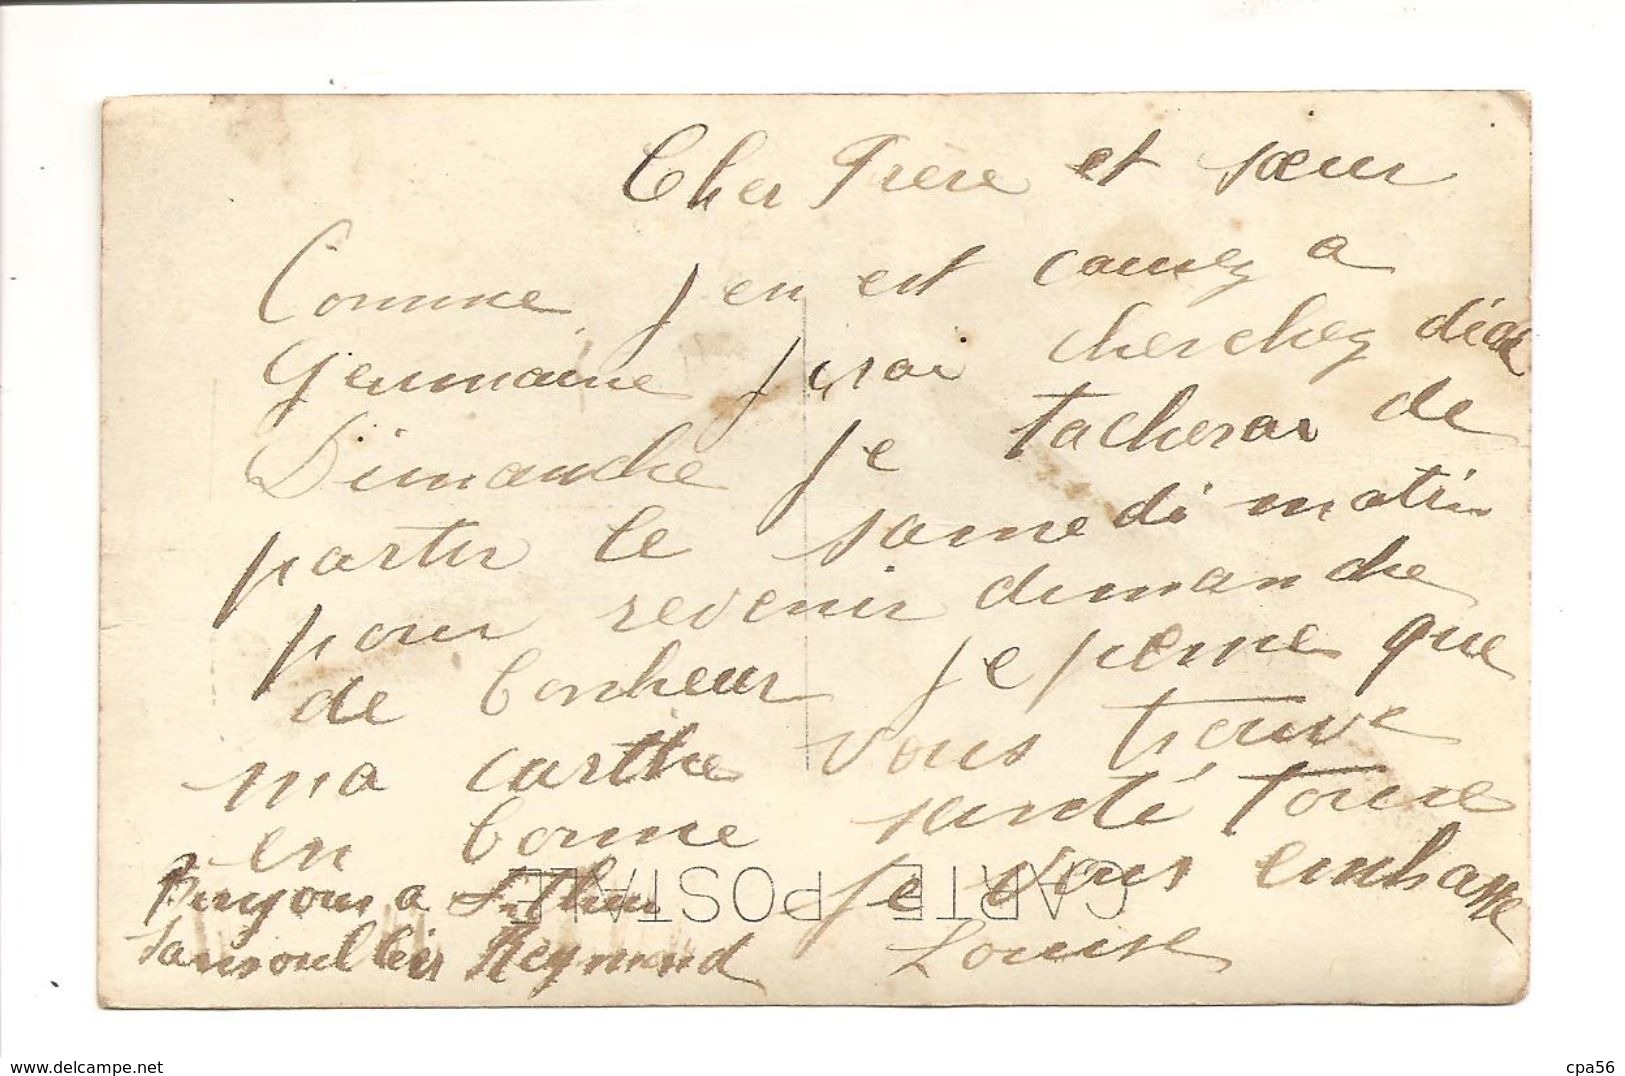 Cher Frère et sœur
Comme j en est causez a
Germaine j irai cherchez
Dimanche je tacherai de
partir le samedi matin
pour revenir dimanche
de bonheur je pense que
ma carthe vous trouve
en bonne santé
CARTE POSTALE
je vous embrasse
a
sansoublier Reymond Louise
www.delcampe.net
cpa56